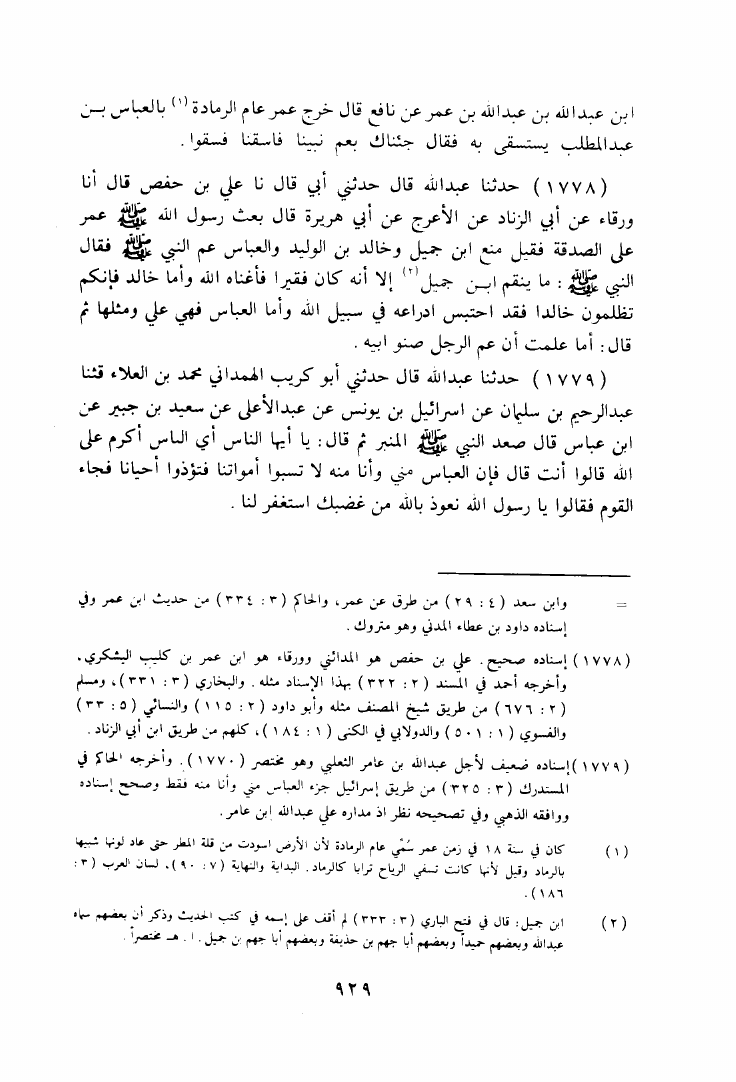 ابن عبدالله بن عبدالله بن عمر عن نافع قال خرج عمر عام الرمادة (١) بالعباس بن
عبدالمطلب يستسقى به فقال جئناك بعم نبينا فاسقنا فسقوا .
(١٧٧٨) حدثنا عبدالله قال حدثني أبي قال نا علي بن حفص قال أنا
ورقاء عن أبي الزناد عن الأعرج عن أبي هريرة قال بعث رسول الله ﷺ عمر
على الصدقة فقيل منع ابن جميل وخالد بن الوليد والعباس عم النبي ﷺ فقال
النبي ﷺ : ما ينقم ابن جميل (٢) إلا أنه كان فقيرا فأغناه الله وأما خالد فإنكم
تظلمون خالدا فقد احتبس ادراعه في سبيل الله وأما العباس فهي علي ومثلها ثم
قال : أما علمت أن عم الرجل صنو ابيه .
(١٧٧٩) حدثنا عبدالله قال حدثني أبو كريب الهمداني محمد بن العلاء قثنا
عبدالرحيم بن سليمان عن اسرائيل بن يونس عن عبدالأعلى عن سعيد بن جبير عن
ابن عباس قال صعد النبي ﷺ المنبر ثم قال : يا أيها الناس أي الناس أكرم على
الله قالوا أنت قال فإن العباس مني وأنا منه لا تسبوا أمواتنا فتؤذوا أحيانا فجاء
القوم فقالوا يا رسول الله نعوذ بالله من غضبك استغفر لنا .
= وابن سعد (٤ : ٢٩) من طرق عن عمر، والحاكم (٣ : ٣٣٤) من حديث ابن عمر وفي
إسناده داود بن عطاء المدني وهو متروك .
(١٧٧٨) إسناده صحيح . علي بن حفص هو المدائني وورقاء هو ابن عمر بن كليب اليشكري .
وأخرجه أحمد في المسند (٢ : ٣٢٢) بهذا الإسناد مثله . والبخاري (٣ : ٣٣١)، ومسلم
(٢ : ٦٧٦) من طريق شيخ المصنف مثله وأبو داود (٢ : ١١٥) والنسائي (٥ : ٣٣)
والفسوي (١ : ٥٠١) والدولابي في الكنى (١ : ١٨٤)، كلهم من طريق ابن أبي الزناد .
(١٧٧٩) إسناده ضعيف لأجل عبدالله بن عامر الثعلبي وهو مختصر (١٧٧٠) . وأخرجه الحاكم في
المستدرك (٣ : ٣٢٥) من طريق إسرائيل جزء العباس مني وأنا منه فقط وصحح إسناده
ووافقه الذهبي وفي تصحيحه نظر اذ مداره علي عبدالله ابن عامر .
(١) كان في سنة ١٨ في زمن عمر سُمّي عام الرمادة لأن الأرض اسودت من قلة المطر حتى عاد لونها شبيها
بالرماد وقيل لأنها كانت تسفي الرياح ترابا كالرماد . البداية والنهاية (٧ : ٩٠)، لسان العرب (٣ :
١٨٦) .
(٢) ابن جميل : قال في فتح الباري (٣ : ٣٣٣) لم أقف على إسمه في كتب الحديث وذكر أن بعضهم سماه
عبدالله وبعضهم حميداً وبعضهم أبا جهم بن حذيفة وبعضهم أبا جهم بن جميل . ا . هـ مختصراً .
٩٢٩